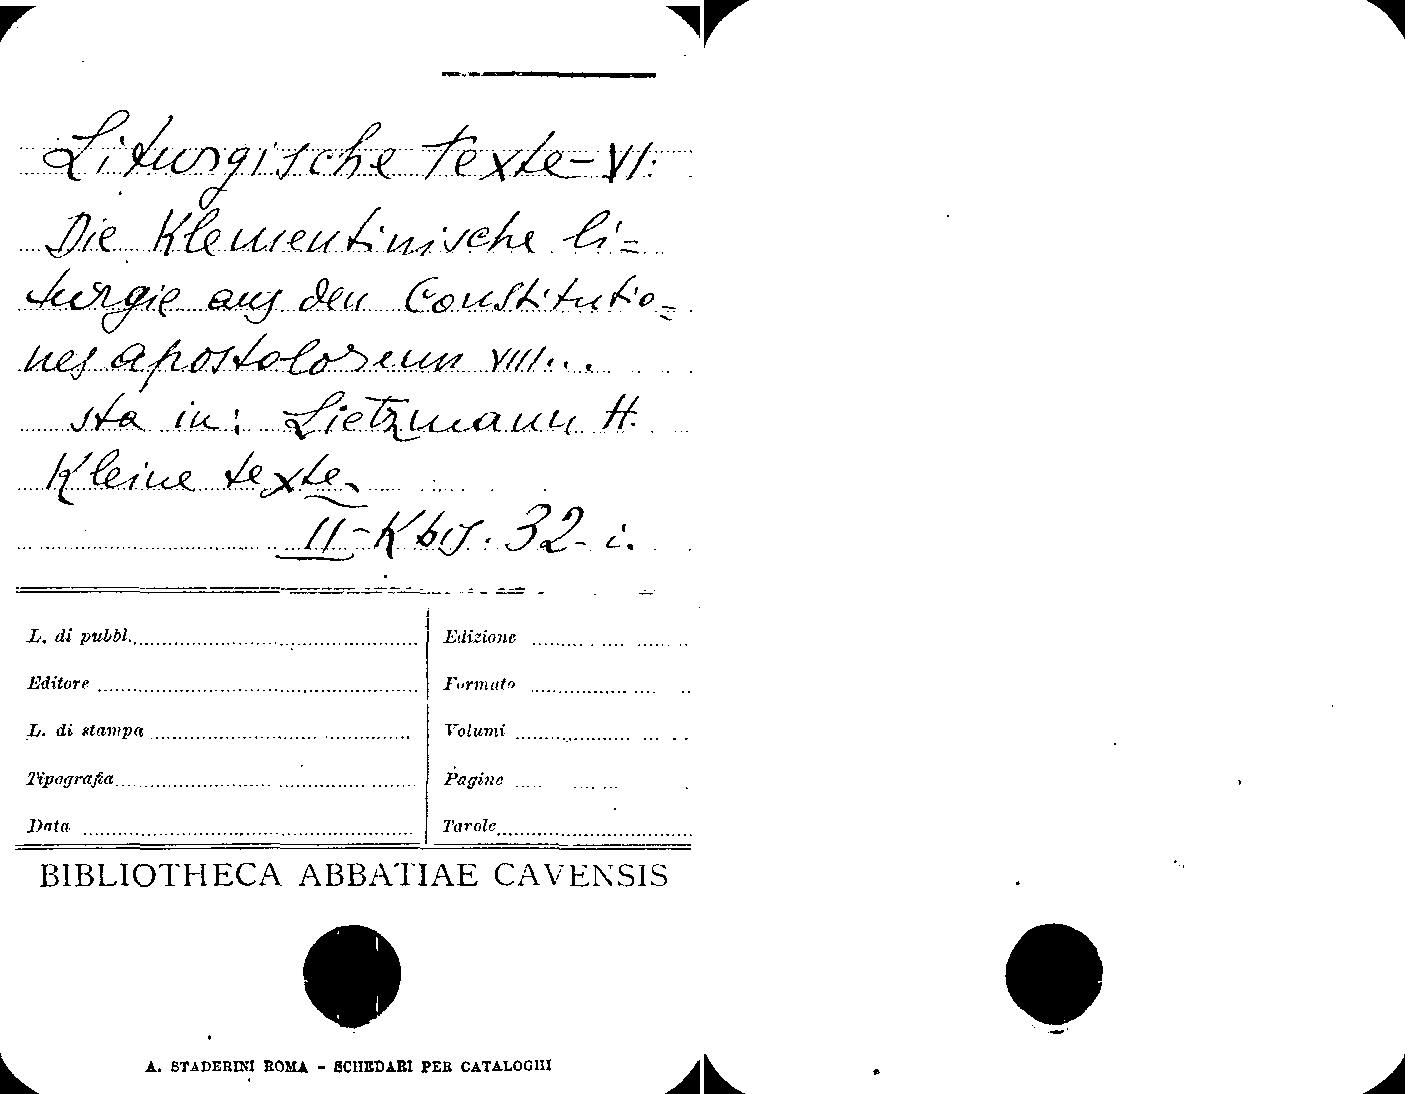 Liturgische Texte-VI:
Die Klementinische li=
turgie aus den Constitutio=
nes apostolorum VIII...
sta in: Lietzmann H.
Kleine texte.
II-K bis. 32-i.
L. di pubbl.
Edizione
Editore
Formato
L. di stampa
Volumi
Tipografia
Pagine
Data
Tavole
BIBLIOTHECA ABBATIAE CAVENSIS
A. STADERINI ROMA - SCHEDARI PER CATALOGHI